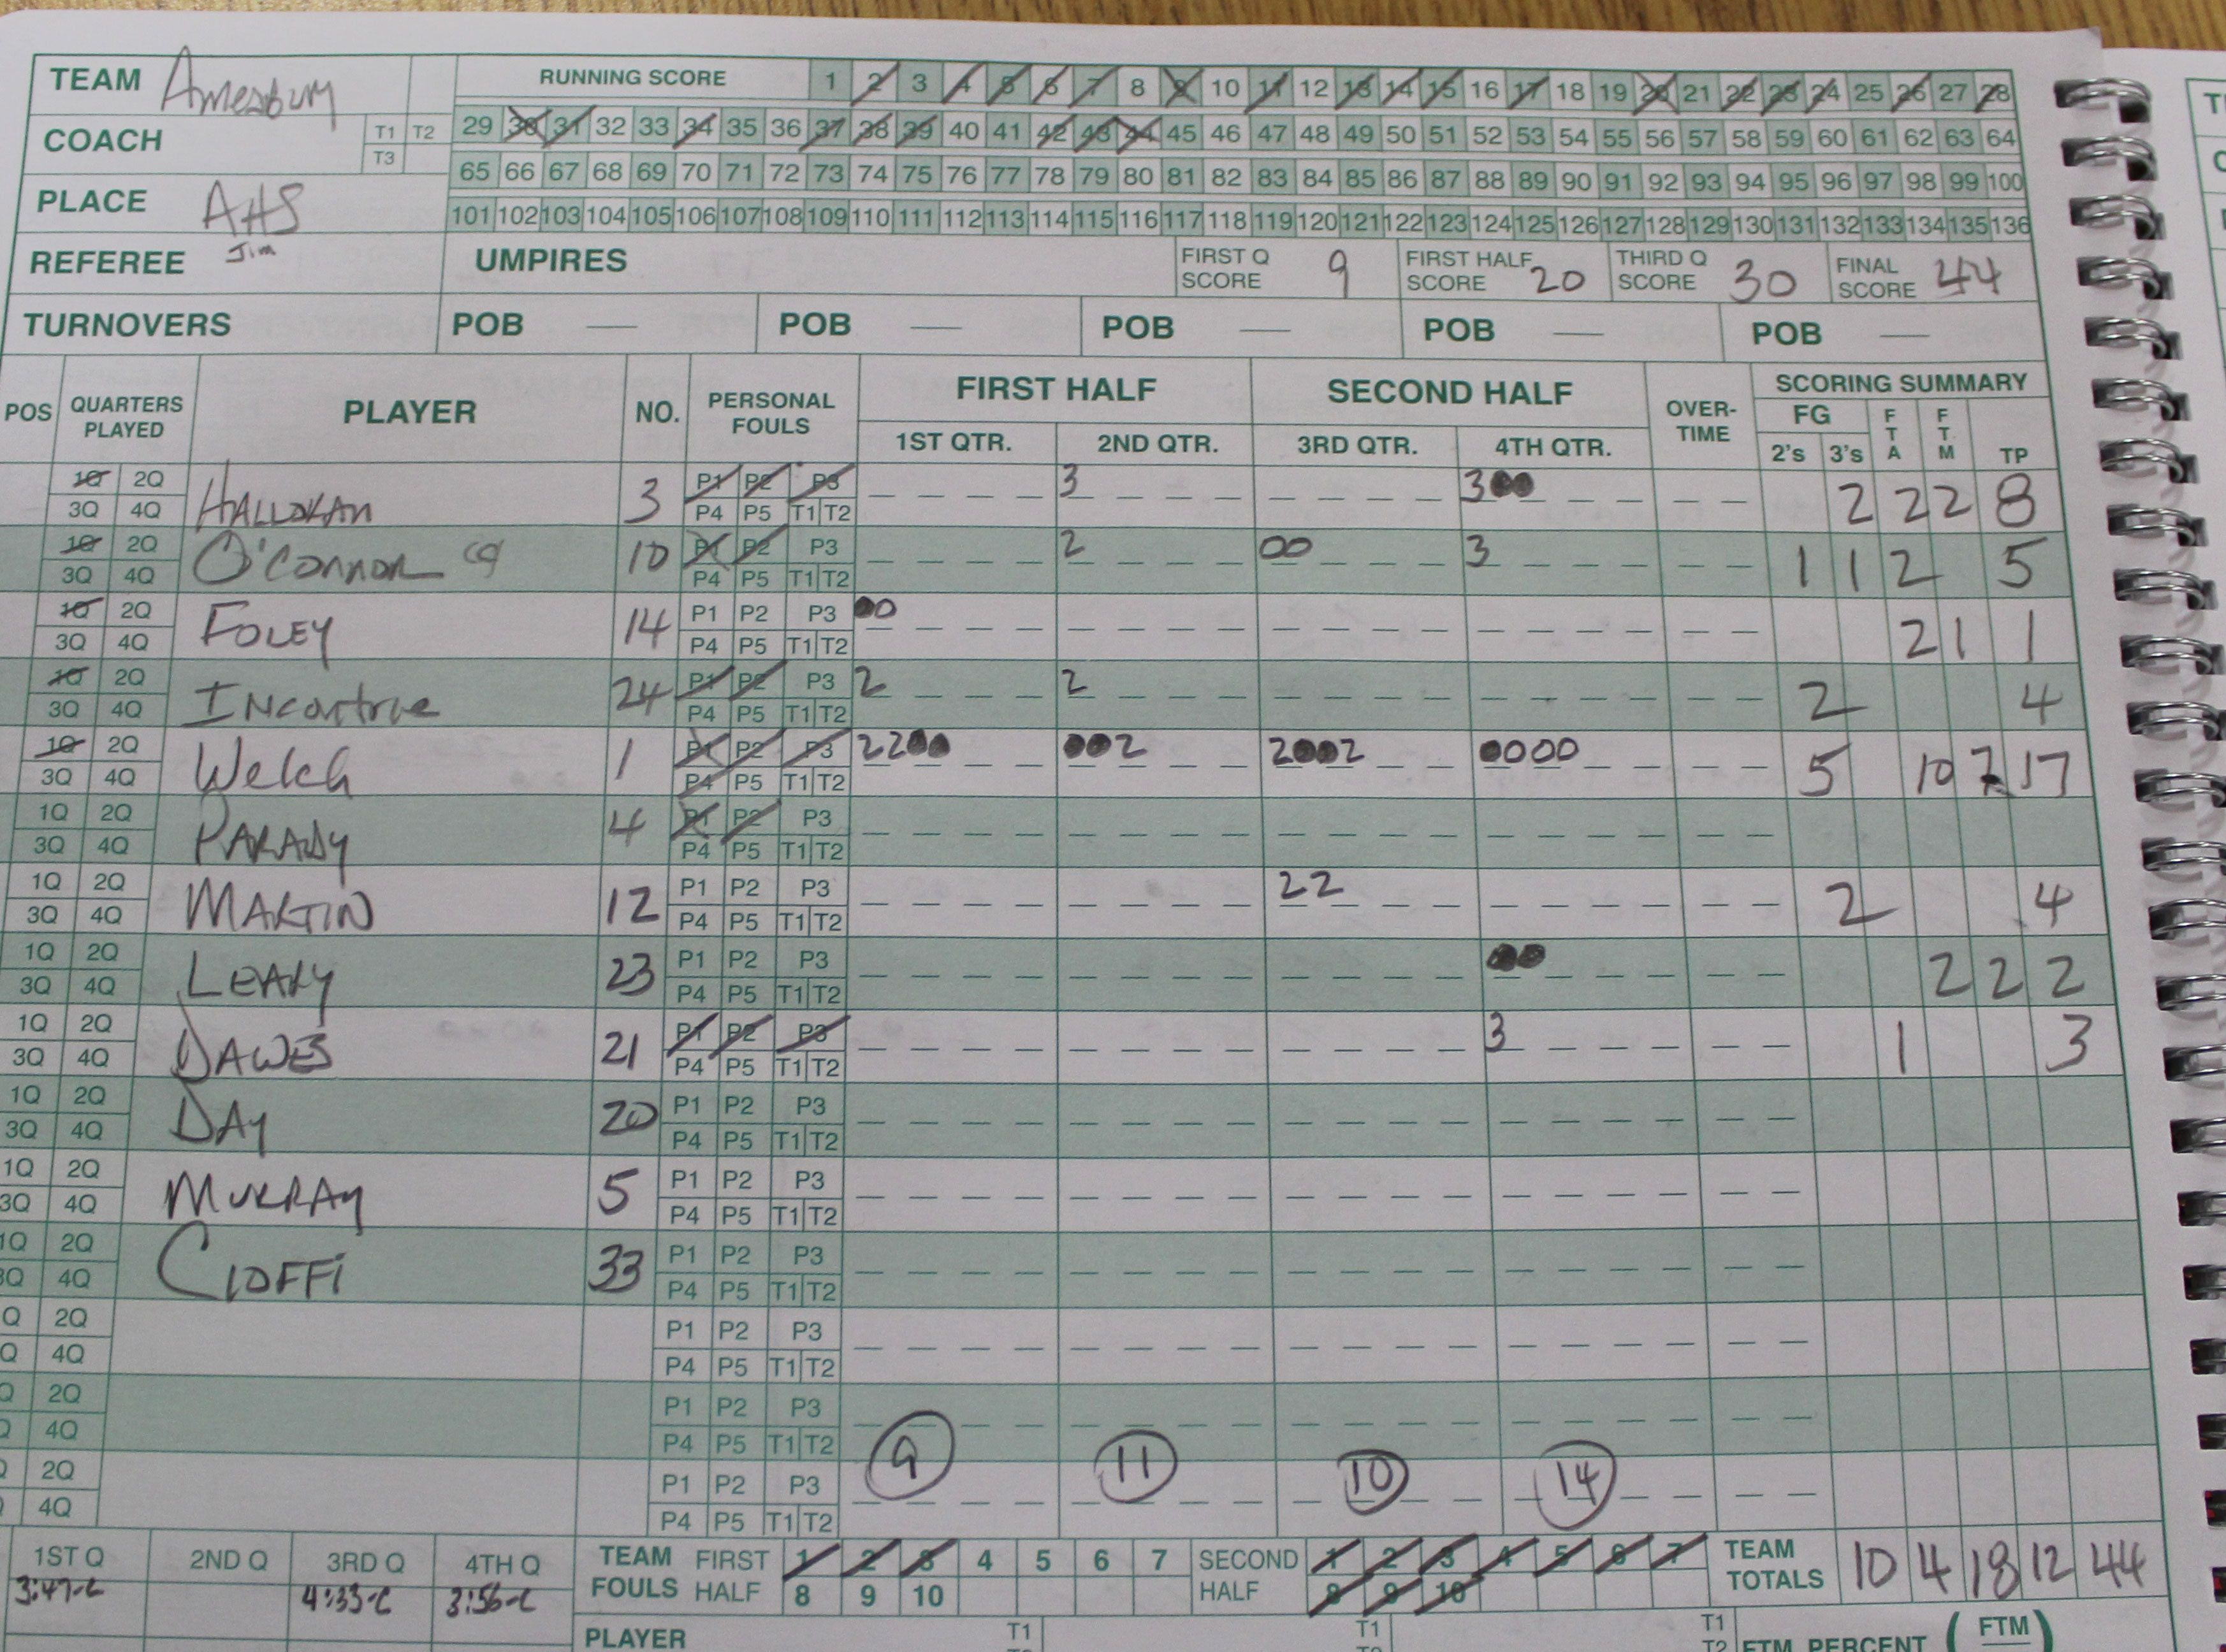 TEAM Amesbury RUNNING SCORE 1 2 3 4 5 6 7 8 9 10 11 12 13 14 15 16 17 18 19 20 21 22 23 24 25 26 27 28
COACH T1 T2 T3 29 30 31 32 33 34 35 36 37 38 39 40 41 42 43 44 45 46 47 48 49 50 51 52 53 54 55 56 57 58 59 60 61 62 63 64
65 66 67 68 69 70 71 72 73 74 75 76 77 78 79 80 81 82 83 84 85 86 87 88 89 90 91 92 93 94 95 96 97 98 99 100
PLACE AHS 101 102 103 104 105 106 107 108 109 110 111 112 113 114 115 116 117 118 119 120 121 122 123 124 125 126 127 128 129 130 131 132 133 134 135 136
REFEREE Jim UMPIRES FIRST Q SCORE 9 FIRST HALF SCORE 20 THIRD Q SCORE 30 FINAL SCORE 44
TURNOVERS POB — POB — POB — POB — POB —
POS QUARTERS PLAYED PLAYER NO. PERSONAL FOULS FIRST HALF SECOND HALF OVER-TIME SCORING SUMMARY
1ST QTR. 2ND QTR. 3RD QTR. 4TH QTR. FG 2's 3's FTA FTM TP
1Q 2Q 3Q 4Q HALLORAN 3 P1 P2 P3 P4 P5 T1 T2 3 300 2 2 2 8
1Q 2Q 3Q 4Q O'CONNOR 10 P1 P2 P3 P4 P5 T1 T2 2 00 3 1 1 2 5
1Q 2Q 3Q 4Q FOLEY 14 P1 P2 P3 P4 P5 T1 T2 00 2 1 1
1Q 2Q 3Q 4Q 24 P1 P2 P3 P4 P5 T1 T2 2 2 2 4
1Q 2Q 3Q 4Q Welch 1 P1 P2 P3 P4 P5 T1 T2 2200 002 2002 0000 5 10 7 17
1Q 2Q 3Q 4Q PARADY 4 P1 P2 P3 P4 P5 T1 T2
1Q 2Q 3Q 4Q MARTIN 12 P1 P2 P3 P4 P5 T1 T2 22 2 4
1Q 2Q 3Q 4Q LEARY 23 P1 P2 P3 P4 P5 T1 T2 00 2 2 2
1Q 2Q 3Q 4Q DAWES 21 P1 P2 P3 P4 P5 T1 T2 3 1 3
1Q 2Q 3Q 4Q DAY 20 P1 P2 P3 P4 P5 T1 T2
1Q 2Q 3Q 4Q MURRAY 5 P1 P2 P3 P4 P5 T1 T2
1Q 2Q 3Q 4Q CIOFFI 33 P1 P2 P3 P4 P5 T1 T2
Q 2Q Q 4Q P1 P2 P3 P4 P5 T1 T2
Q 2Q Q 4Q P1 P2 P3 P4 P5 T1 T2
2Q 4Q P1 P2 P3 P4 P5 T1 T2 9 11 10 14
1ST Q 2ND Q 3RD Q 4TH Q TEAM FOULS FIRST HALF 1 2 3 4 5 6 7 8 9 10 SECOND HALF 1 2 3 4 5 6 7 8 9 10 TEAM TOTALS 10 4 18 12 44
3:47-C 4:33-C 3:56-C
PLAYER T1 T1 T1 T2 FTM PERCENT (FTM)